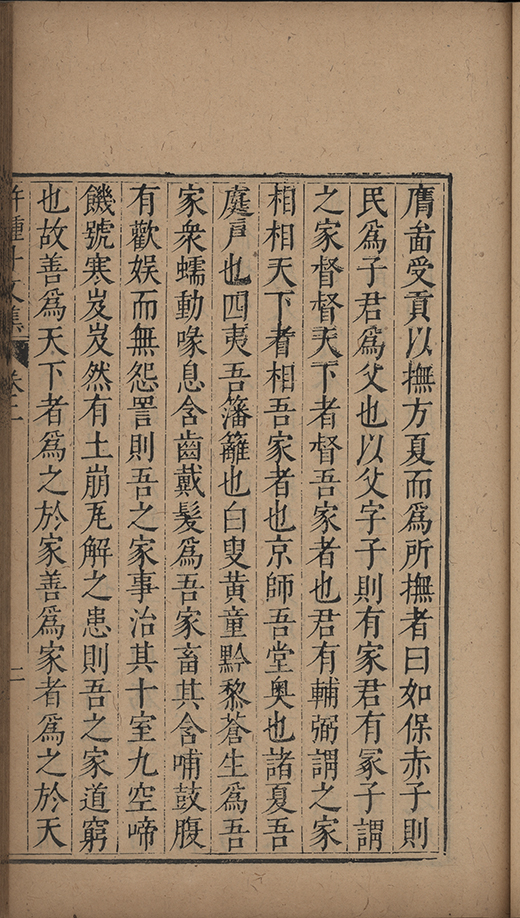 膺啚受貢以撫方夏而爲所撫者曰如保赤子則
民爲子君爲父也以父字子則有家君有冢子謂
之家督督天下者督吾家者也君有輔弼謂之家
相相天下者相吾家者也京師吾堂奧也諸夏吾
庭戸也四夷吾籓籬也白叟黄童黔黎蒼生爲吾
家衆蠕動喙息含齒戴髮爲吾家畜其含哺鼓腹
有歡娱而無怨詈則吾之家事治其十室九空啼
饑號寒岌岌然有土崩瓦解之患則吾之家道窮
也故善爲天下者爲之於家善爲家者爲之於天
卷二
二